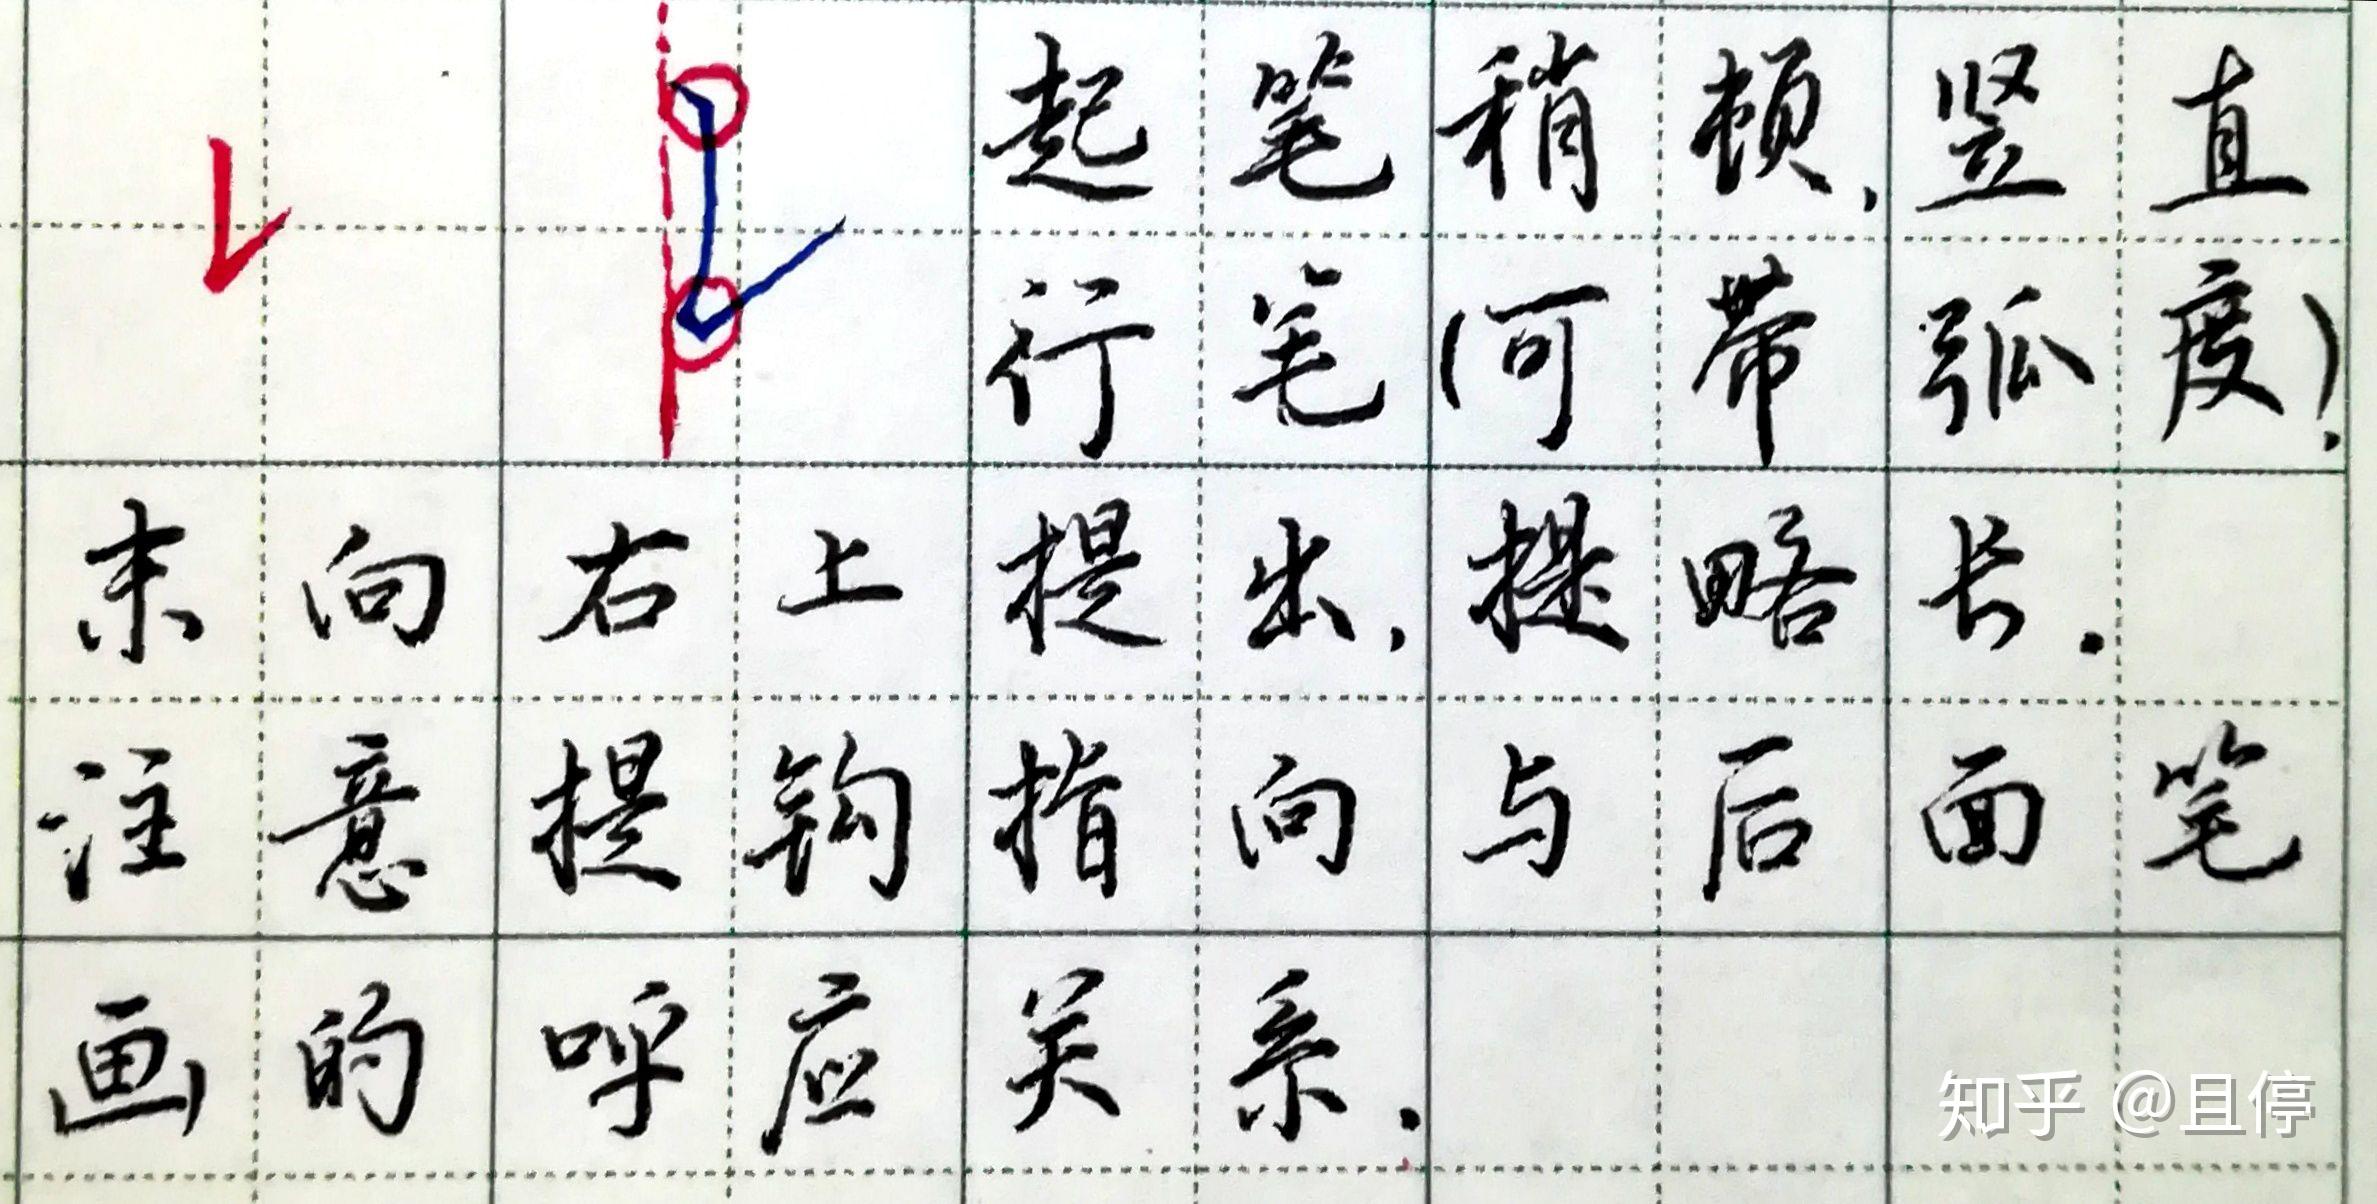 起笔稍顿,竖直
行笔(可带弧度),
末向右上提出,提略长.
注意提钩指向与后面笔
画的呼应关系.
知乎 @且停